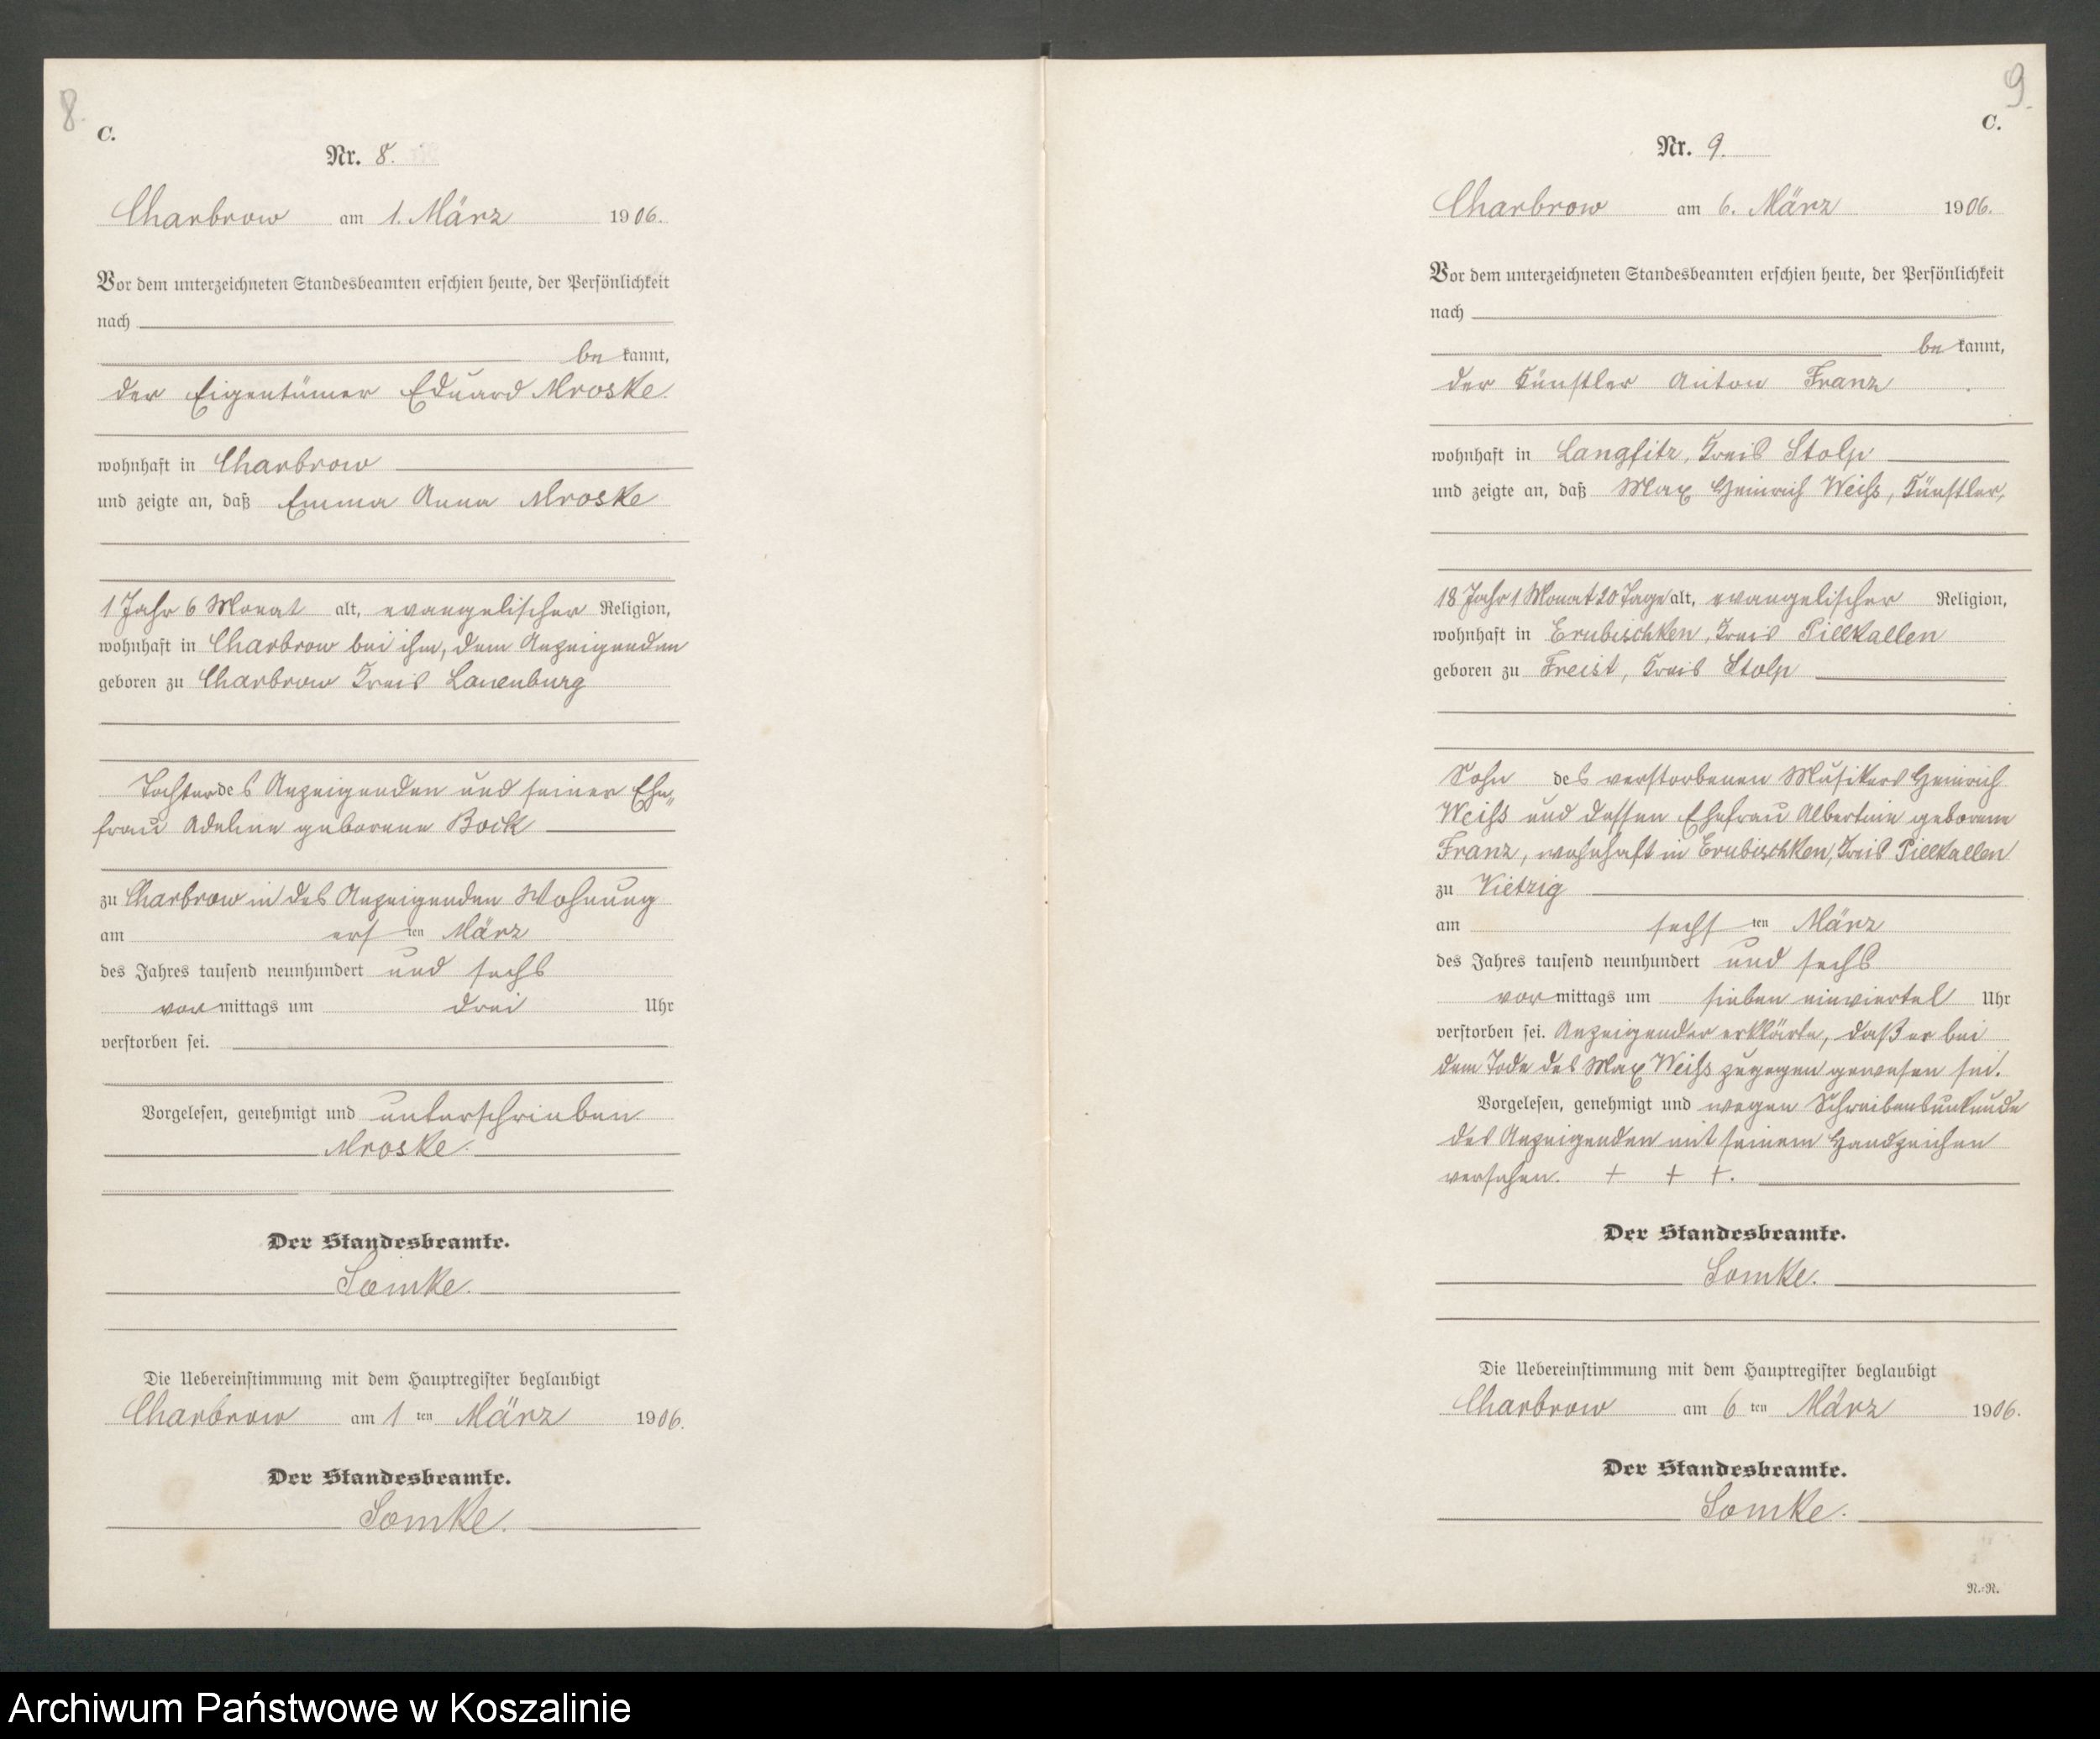 8.
C.
Nr. 8.
Charbrow am 1. März 1906.
Vor dem unterzeichneten Standesbeamten erschien heute, der Persönlichkeit
nach
be kannt,
der Eigentümer Eduard Mroske.
wohnhaft in Charbrow
und zeigte an, daß Emma Anna Mroske
1 Jahr 6 Monat alt, evangelischer Religion,
wohnhaft in Charbrow bei ihm, dem Anzeigenden
geboren zu Charbrow Kreis Lauenburg
Tochter des Anzeigenden und seiner Ehe„
frau Adeline geborene Bock
zu Charbrow in des Anzeigenden Wohnung
am ers ten März
des Jahres tausend neunhundert und sechs
vor mittags um drei Uhr
verstorben sei.
Vorgelesen, genehmigt und unterschrieben.
Mroske.
Der Standesbeamte.
Somke.
Die Uebereinstimmung mit dem Hauptregister beglaubigt
Charbrow am 1 ten März 1906.
Der Standesbeamte.
Somke.
9.
C.
Nr. 9.
Charbrow am 6. März 1906.
Vor dem unterzeichneten Standesbeamten erschien heute, der Persönlichkeit
nach
be kannt,
der Künstler Anton Franz
wohnhaft in Langfitz, Kreis Stolp
und zeigte an, daß Max Heinrich Weiss, Künstler,
18 Jahr 1 Monat 20 Tage alt, evangelischer Religion,
wohnhaft in Erubischken, Kreis Pillkallen
geboren zu Freist, Kreis Stolp
Sohn des verstorbenen Musikers Heinrich
Weiss und dessen Ehefrau Albertine geborene
Franz, wohnhaft in Erubischken, Kreis Pillkallen
zu Vietzig
am sechs ten März
des Jahres tausend neunhundert und sechs
vor mittags um sieben einviertel Uhr
verstorben sei. Anzeigender erklärte, daß er bei
dem Tode des Max Weiss zugegen gewesen sei.
Vorgelesen, genehmigt und wegen Schreibensunkunde
des Anzeigenden mit seinem Handzeichen
versehen. + + +.
Der Standesbeamte.
Somke.
Die Uebereinstimmung mit dem Hauptregister beglaubigt
Charbrow am 6 ten März 1906.
Der Standesbeamte.
Somke.
N.=N.
Archiwum Państwowe w Koszalinie